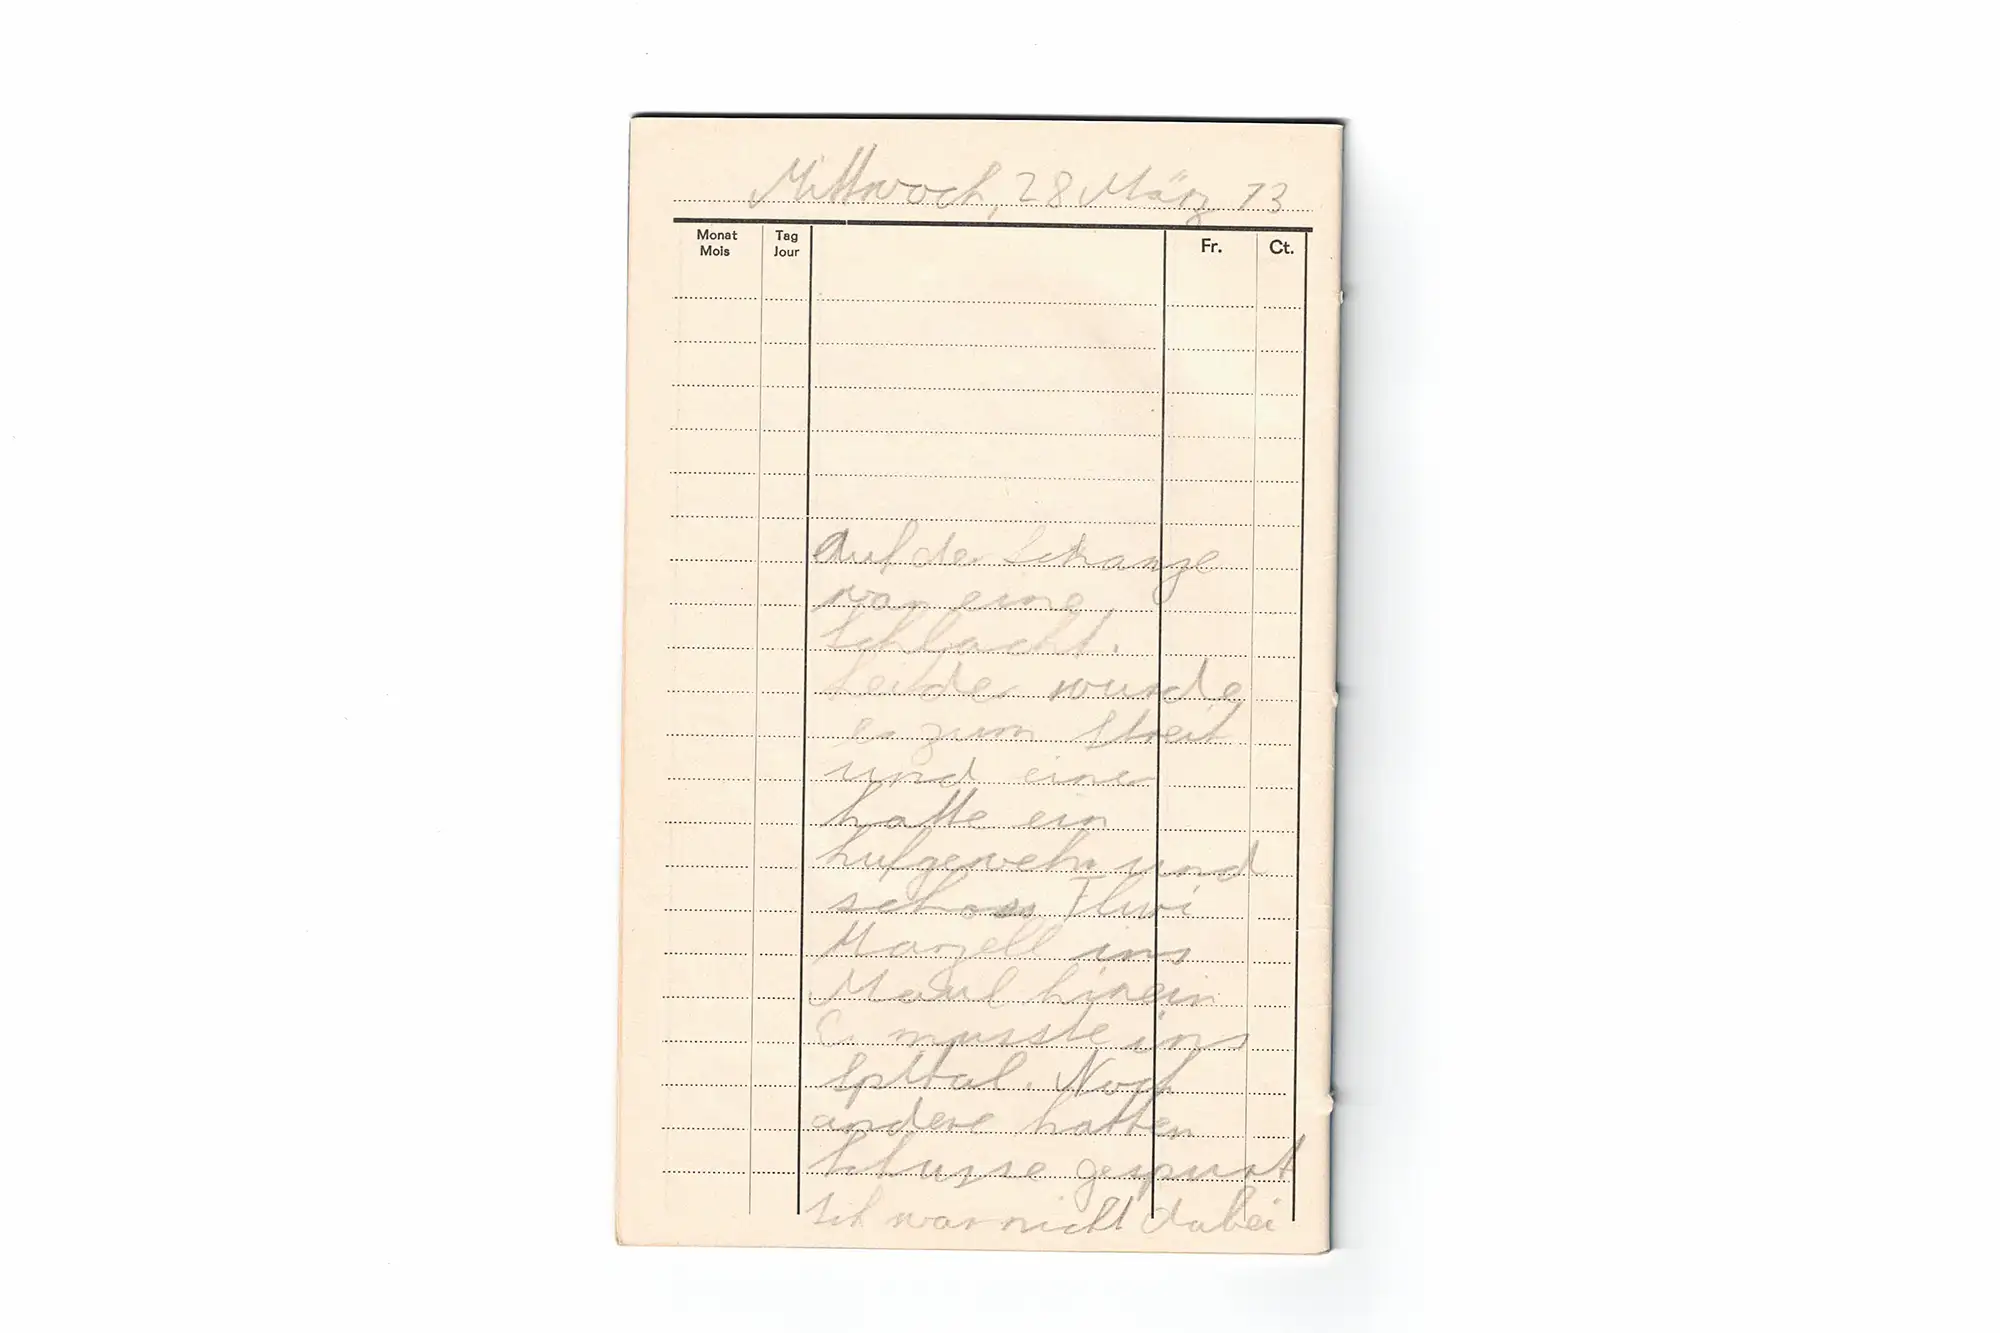 Mittwoch, 28 März 73
Monat Tag Fr. Ct.
Mois Jour
Auf der Schanze
war eine
Schlacht.
Leider wurde
es zum Streit
und einer
hatte ein
Lufgewehr und
schoss Fluri
Marzell ins
Maul hinein
Er musste ins
Spital. Noch
andere hatten
Schüsse gespürt
Ich war nicht dabei